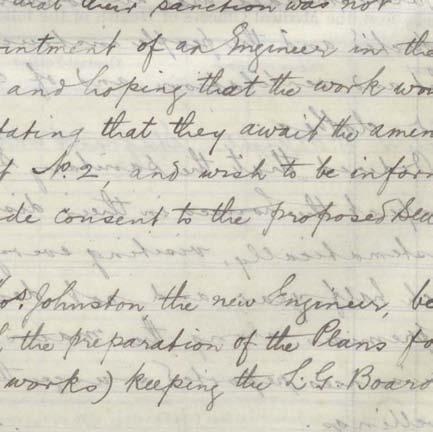 that their sanction was not
ointment of an Engineer in the
and hoping that the work wou
tating that they await the amen
t No. 2, and wish to be inform
de consent to the proposed
os. Johnston, the new Engineer, be
the preparation of the Plans fo
works) keeping the L. G. Board